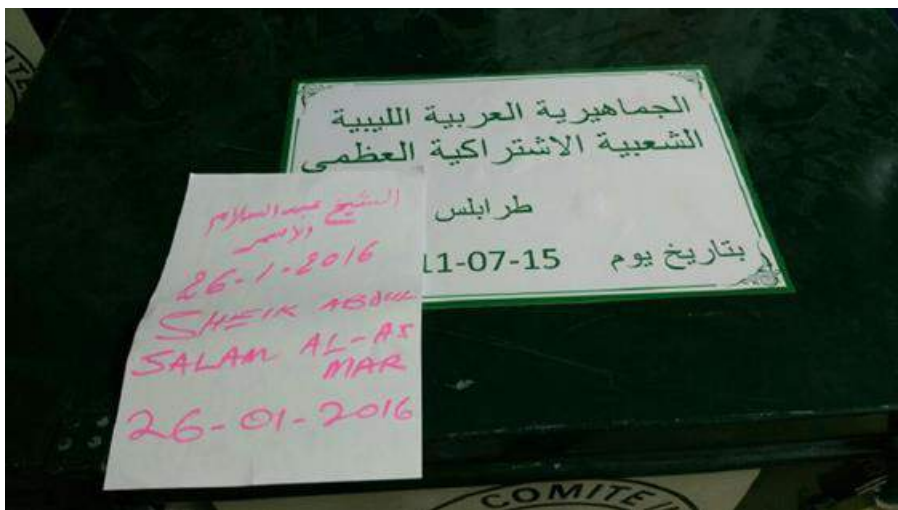 الجماهيرية العربية الليبية
الشعبية الاشتراكية العظمى
طرابلس
بتاريخ يوم 11-07-15
الشيخ عبدالسلام
الاسمر
26-1-2016
SHEIK ABDUL
SALAM AL-AS
MAR
26-01-2016
COMITE